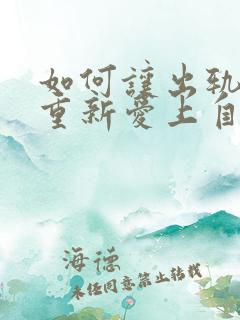 如何讓出軌
重新愛上自
海德
未經同意禁止轉載